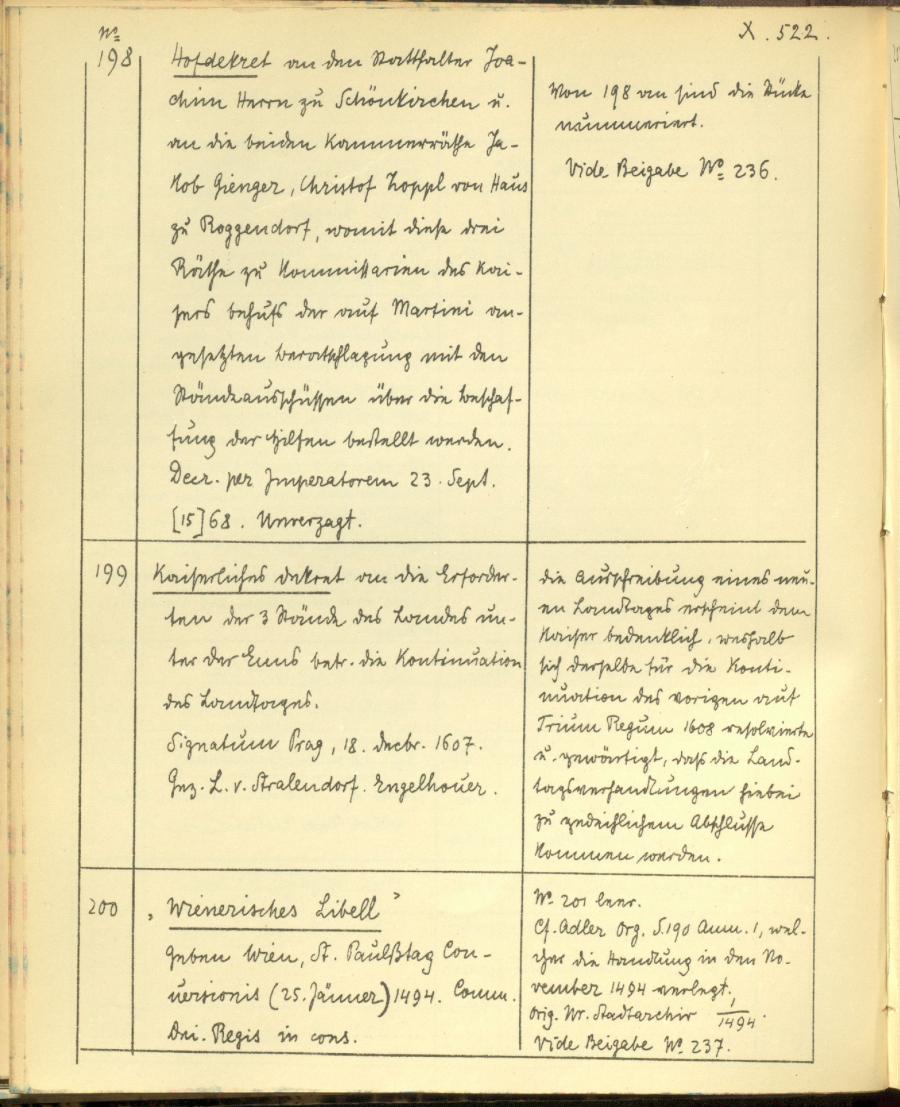 Nº
X. 522.
198
Hofdekret an den Statthalter Joa-
chim Herrn zu Schönkirchen u.
an die beiden Kammerräthe Ja-
kob Gienger, Christof Zoppl von Haus
zu Roggendorf, womit diese drei
Räthe zu Kommissarien des Kai-
sers behufs der auf Martini an-
gesetzten Beratschlagung mit den
Ständeausschüssen über die Beschaf-
fung der Hilfen bestellt werden.
Decr. per Imperatorem 23. Sept.
[15]68. Unverzagt.
Von 198 an sind die Stücke
nummeriert.
Vide Beigabe Nº 236.
199
Kaiserliches Dekret an die Erforder-
ten der 3 Stände des Landes un-
ter der Enns betr. die Kontinuation
des Landtages.
Signatum Prag, 18. Decbr. 1607.
Gez. L. v. Stralendorf. Engelhouer.
Die Ausschreibung eines neu-
en Landtages erscheint dem
Kaiser bedenklich, weshalb
sich derselbe für die Konti-
nuation des vorigen auf
Trium Regum 1608 resolvierte
u. gewärtigt, daß die Land-
tagsverhandlungen hiebei
zu gedeihlichem Abschlusse
kommen werden.
200
„Wienerisches Libell"
Geben Wien, St. Paulßtag Con-
versionis (25. Jänner) 1494. Comm.
Dni. Regis in cons.
Nº 201 leer.
Cf. Adler Org. S. 190 Anm. 1, wel-
cher die Handlung in den No-
vember 1494 verlegt.
Orig. Wr. Stadtarchiv 1/1494.
Vide Beigabe Nº 237.